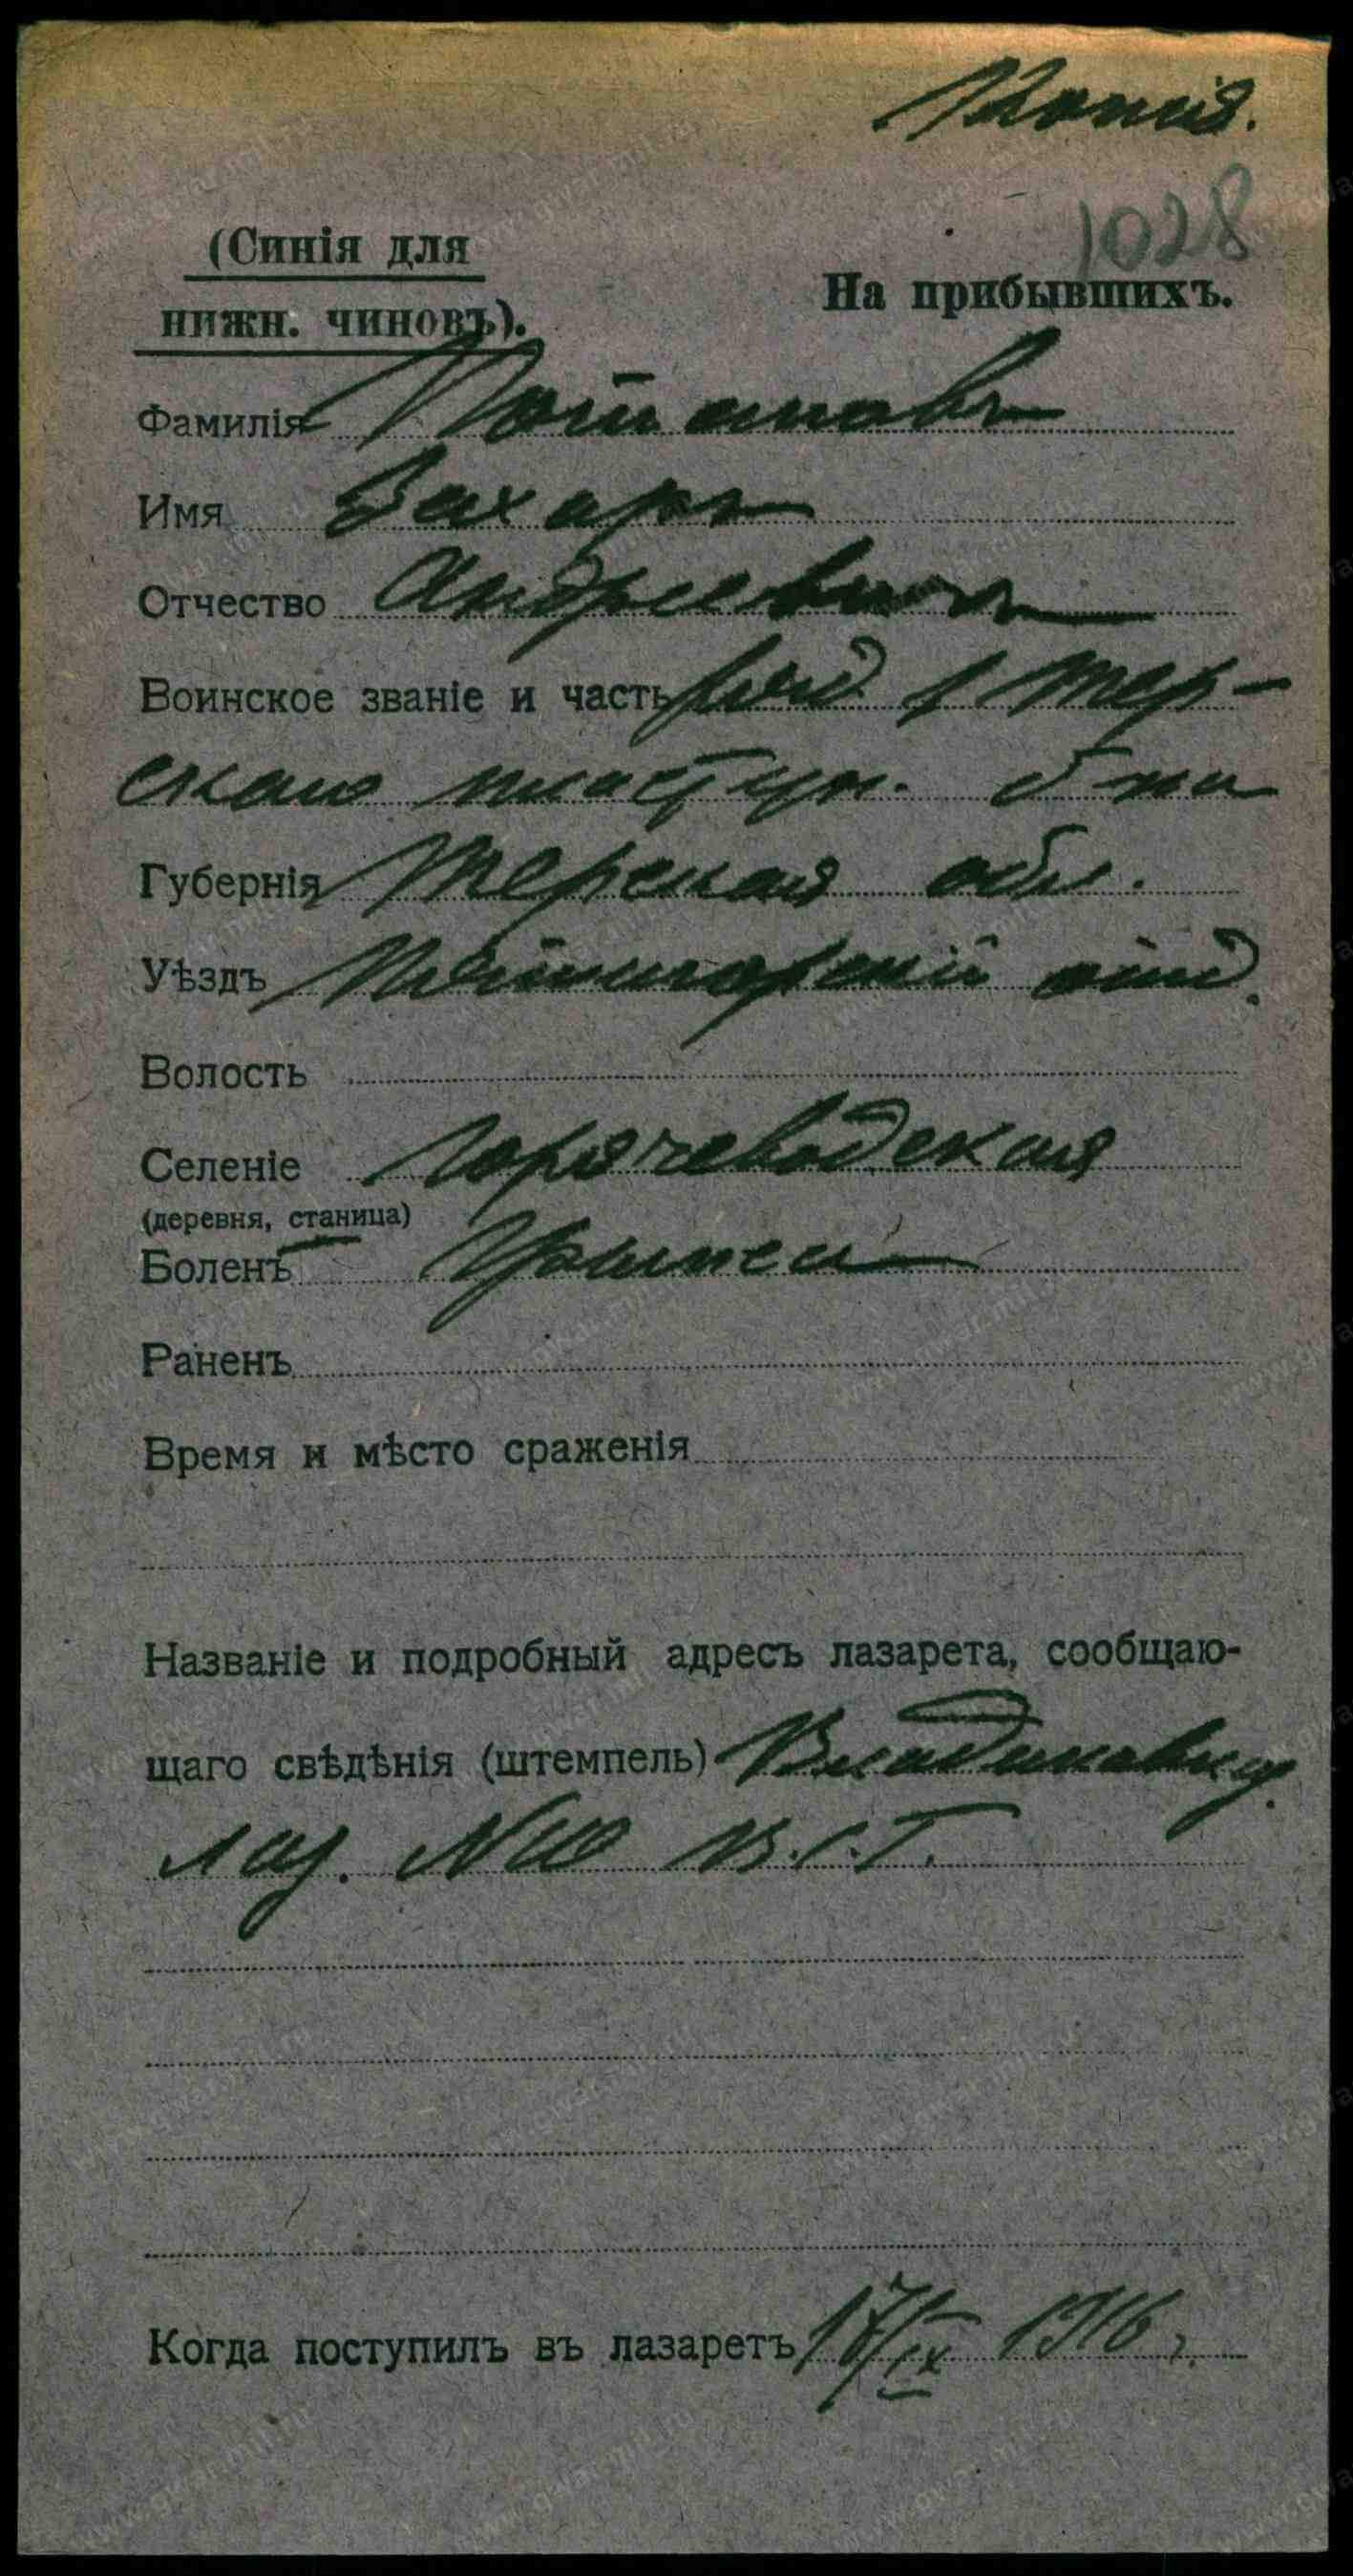 Копія.
1028
(Синія для
нижн. чиновъ).
На прибывшихъ.
Фамилія Потаповъ
Имя Захаръ
Отчество Андреевичъ
Воинское званіе и часть ряд. 1 Тер-
скаго пластун. б-на
Губернія Терская обл.
Уѣздъ Пятигорскій отд.
Волость
Селеніе Горячеводская
(деревня, станица)
Боленъ
Раненъ
Время и мѣсто сраженія
Названіе и подробный адресъ лазарета, сообщаю-
щаго свѣдѣнія (штемпель) Владикавказ.
лаз. В.С.Г.
Когда поступилъ въ лазаретъ 17/IX 1916 г.